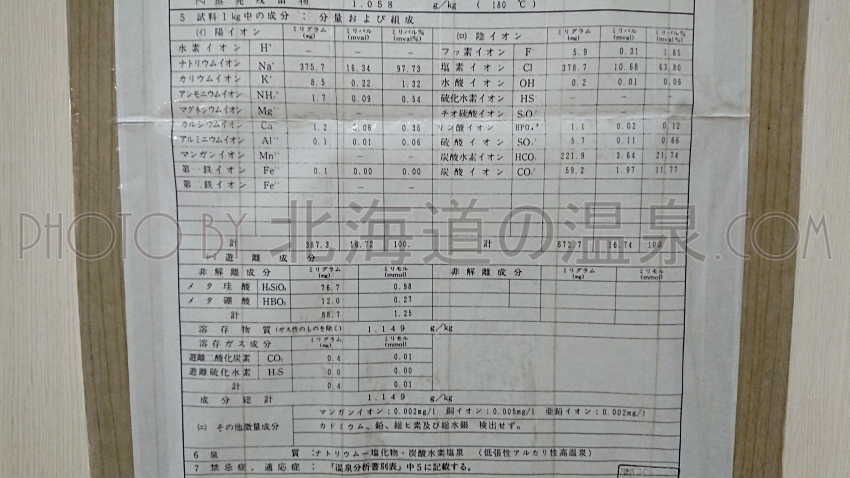 蒸発残留物 1.058 g/kg (180℃)
5 試料1kg中の成分 : 分量および組成
(イ) 陽イオン ミリグラム(mg) ミリバル(mval) ミリバル%(mval%) (ロ) 陰イオン ミリグラム(mg) ミリバル(mval) ミリバル%(mval%)
水素イオン H⁺ － － フッ素イオン F 5.9 0.31 1.85
ナトリウムイオン Na⁺ 375.7 16.34 97.73 塩素イオン Cl 378.7 10.68 63.80
カリウムイオン K⁺ 8.5 0.22 1.32 水酸イオン OH 0.2 0.01 0.06
アンモニウムイオン NH₄⁺ 1.7 0.09 0.54 硫化水素イオン HS
マグネシウムイオン Mg チオ硫酸イオン S₂O₃
カルシウムイオン Ca 1.2 0.06 0.36 リン酸イオン HPO₄ 1.1 0.02 0.12
アルミニウムイオン Al 0.1 0.01 0.06 硫酸イオン SO₄ 5.7 0.11 0.66
マンガンイオン Mn － － － 炭酸水素イオン HCO₃ 221.9 3.64 21.74
第一鉄イオン Fe 0.1 0.00 0.00 炭酸イオン CO₃ 59.2 1.97 11.77
第二鉄イオン Fe － －
PHOTO BY 北海道の温泉.COM
計 387.3 16.72 100. 計 672.7 16.74 100
遊離成分
非解離成分 ミリグラム(mg) ミリモル(mmol) 非解離成分 ミリグラム(mg) ミリモル(mmol)
メタ珪酸 H₂SiO₃ 76.7 0.98
メタ硼酸 HBO₂ 12.0 0.27
計 88.7 1.25
溶存物質(ガス性のものを除く) 1.149 g/kg
溶存ガス成分 ミリグラム(mg) ミリモル(mmol)
遊離二酸化炭素 CO₂ 0.4 0.01
遊離硫化水素 H₂S 0.0 0.00
計 0.4 0.01
成分総計 1.149 g/kg
マンガンイオン:0.002mg/l 銅イオン:0.005mg/l 亜鉛イオン:0.002mg/l
(ニ) その他微量成分 カドミウム、鉛、総ヒ素及び総水銀 検出せず。
6 泉質 :ナトリウム－塩化物・炭酸水素塩泉 (低張性アルカリ性高温泉)
7 禁忌症、適応症 : 「温泉分析書別表」中5に記載する。